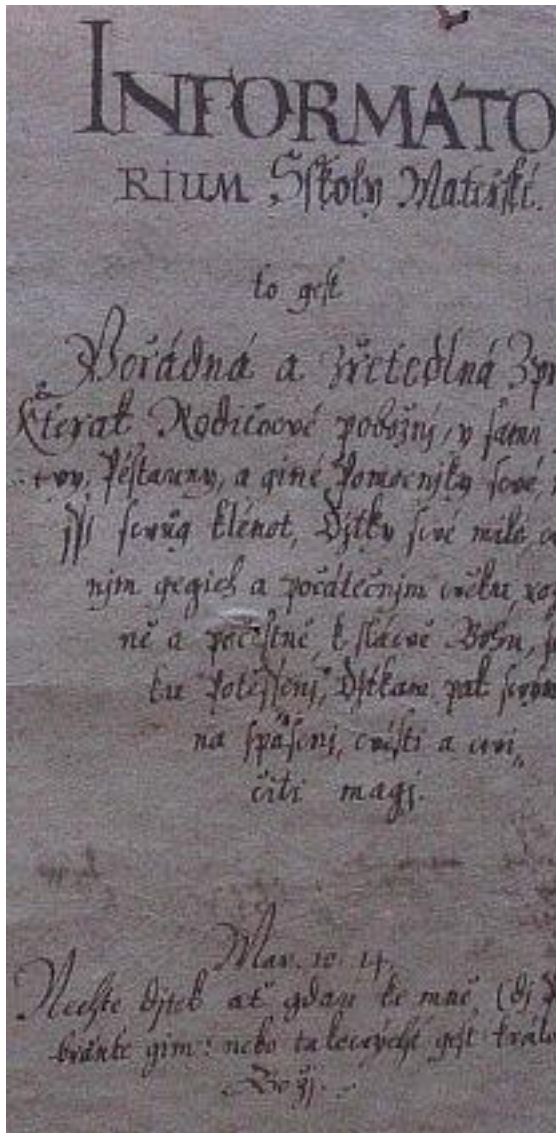 INFORMATO
RIUM Sſkoly Mateřſké.
to geſt
Pořádná a zřetedlná Zpr
kterak Rodičové pobožnj, y ſami
Pěſtauny, a giné Pomocnjky ſvé,
klénot, Djtky ſvé milé,
njm gegich a počátečnjm věku,
ně a počeſtně, k ſlávě Bohu,
Potěſſenj, Djtkam pak
na ſpaſenj, véſti a cvi„
čiti magj.
Mar. 10. 14.
Nechte djtek ať gdau ke mně, (dj
braňte gim: nebo takovýchť geſt králo
Božj.